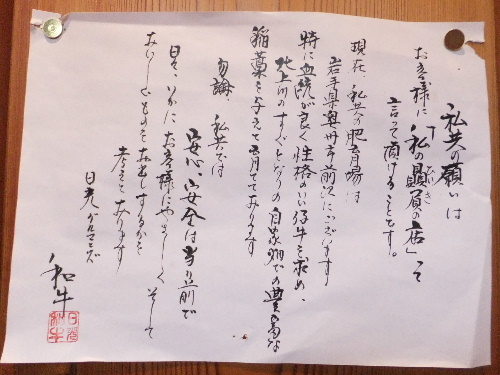 私共の願いは
お客様に「私の贔屓の店」って
ひいき
言って頂けることです。
現在、私共の肥育場は
岩手県奥州市前沢にございます
特に血統が良く性格のいい仔牛を求め、
北上川のすぐとなりの自家畑での豊富な
稲藁を与えて育てております
勿論、私共では
安心、安全は当り前で
日々、いかにお客様にやさしく そして
おいしいものをお出しするかを
考えております
日光グルマンズ
和牛